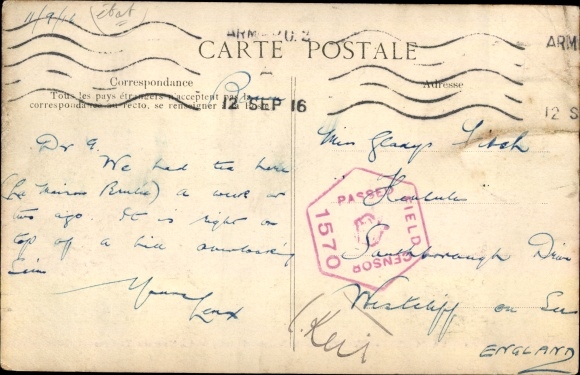 11/9/16
ARMY P.O. 3
CARTE POSTALE
Correspondance
Adresse
Tous les pays étrangers n'acceptent pas la
correspondance au recto, se renseigner à la Poste
12 SEP 16
ARM
12 S
Dr G.
We had tea here
a week or
two ago. It is right on
top of a hill overlooking
Yours
Miss Gladys
Southborough Drive
Westcliff on Sea
ENGLAND
PASSED FIELD CENSOR
1570